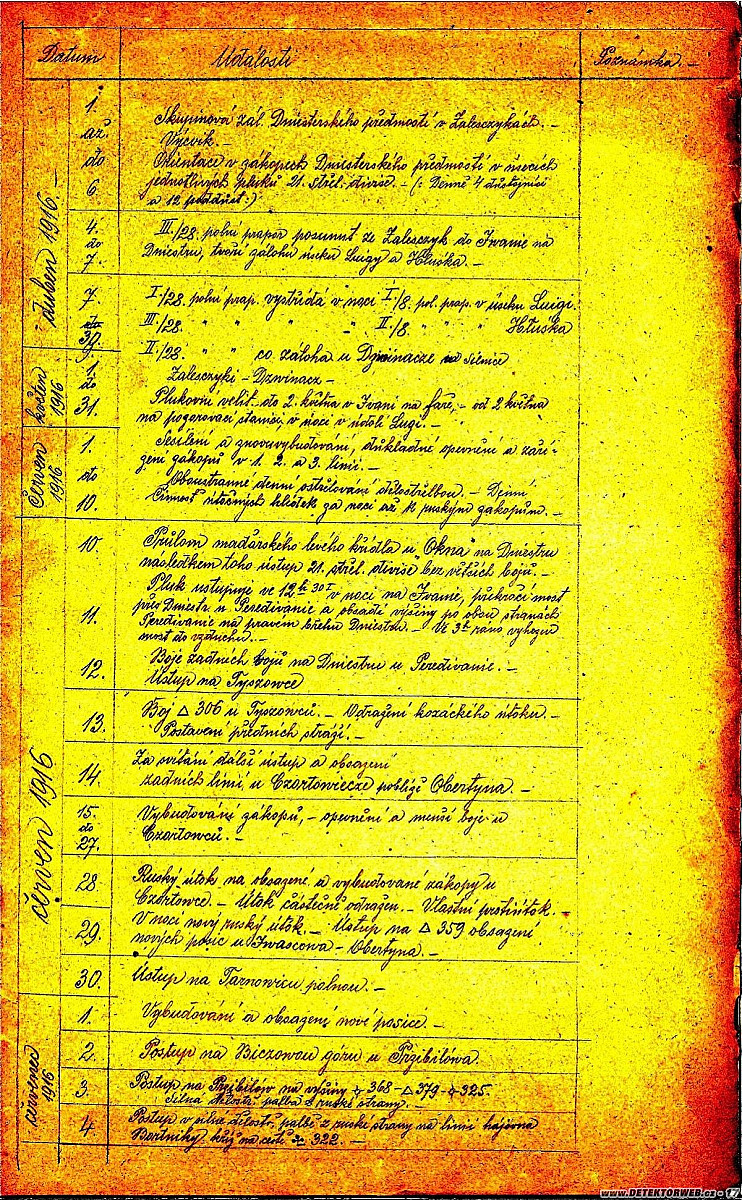 Datum Události Poznámka. —
duben 1916. —
1.
až
do
6.
Skupinová zál. Dniesterského předmostí v Zalesczykách. —
Výcvik. —
Orientace v zákopech Dniesterského předmostí v úsecích
jednotlivých pluků 21. střel. divise. — (: Denně 4 důstojníci
a 12 poddůst. :)
4.
do
7.
III./28. polní prapor posunut ze Zalesczyk do Iwanie na
Dniestru, tvoří zálohu úseku Luigy a Hluška. —
7.
do
30.
I/28. polní prap. vystřídá v noci I/8. pol. prap. v úseku Luigi.
III/28. " " " " II/8. " " " Hluška
II/28. " " co záloha u Dzwinacze na silnice
Zalesczyki – Dzwinacz —
květen 1916
1.
do
31.
Plukovní velit. do 2. května v Ivani na faře, — od 2 května
na pozorovací stanici v noci v údolí Lugi. —
červen 1916
1.
do
10.
Sesílení a znovuvybudování, důkladné opevnění a zaří-
zení zákopů v 1. 2. a 3. linii. —
Oboustranné denní ostřelování dělostřelbou. — Denní
Činnost útočných hlídek za noci až k ruským zákopům. —
červen 1916
10.
Průlom maďarského levého křídla u Okna na Dniestru
následkem toho ústup 21. střel. divise bez větších bojů. —
11.
Pluk ustupuje ve 12 h 30 v noci na Iwanie, překročí most
přes Dniestr u Peredivanie a obsadí výšiny po obou stranách
Peredivanie na pravém břehu Dniestru. — Ve 3 h ráno vyhozen
most do vzduchu. —
12.
Boje zadních bojů na Dniestru u Peredivanie. —
Ústup na Tyszowce
13.
Boj △ 306 u Tyszowců. — Odražení kozáckého útoku. —
Postavení předních stráží. —
14.
Za svítání další ústup a obsazení
zadních linií u Czartowiecze poblíže Obertyna. —
15.
do
27.
Vybudování zákopů, — opevnění a menší boje u
Czartowců. —
28.
Ruský útok na obsazené a vybudované zákopy u
Czortowce. — Útok částečně odražen. — Vlastní protiútok. —
29.
V noci nový ruský útok. — Ústup na △ 359 obsazení
nových posic u Iwascowa – Obertyna. —
30.
Ústup na Tarnowicu polnou. —
červenec 1916
1.
Vybudování a obsazení nové posice. —
2.
Postup na Biczowou góru u Przibilówa.
3.
Postup na Przibilow na výšiny 368 – △ 379 – 325.
Silná dělostř. palba z ruské strany. —
4
Postup v silné dělostř. palbě z ruské strany na linii hájovna
Bortniky kříž na cestě 322. —
www.DETEKTORWEB.cz